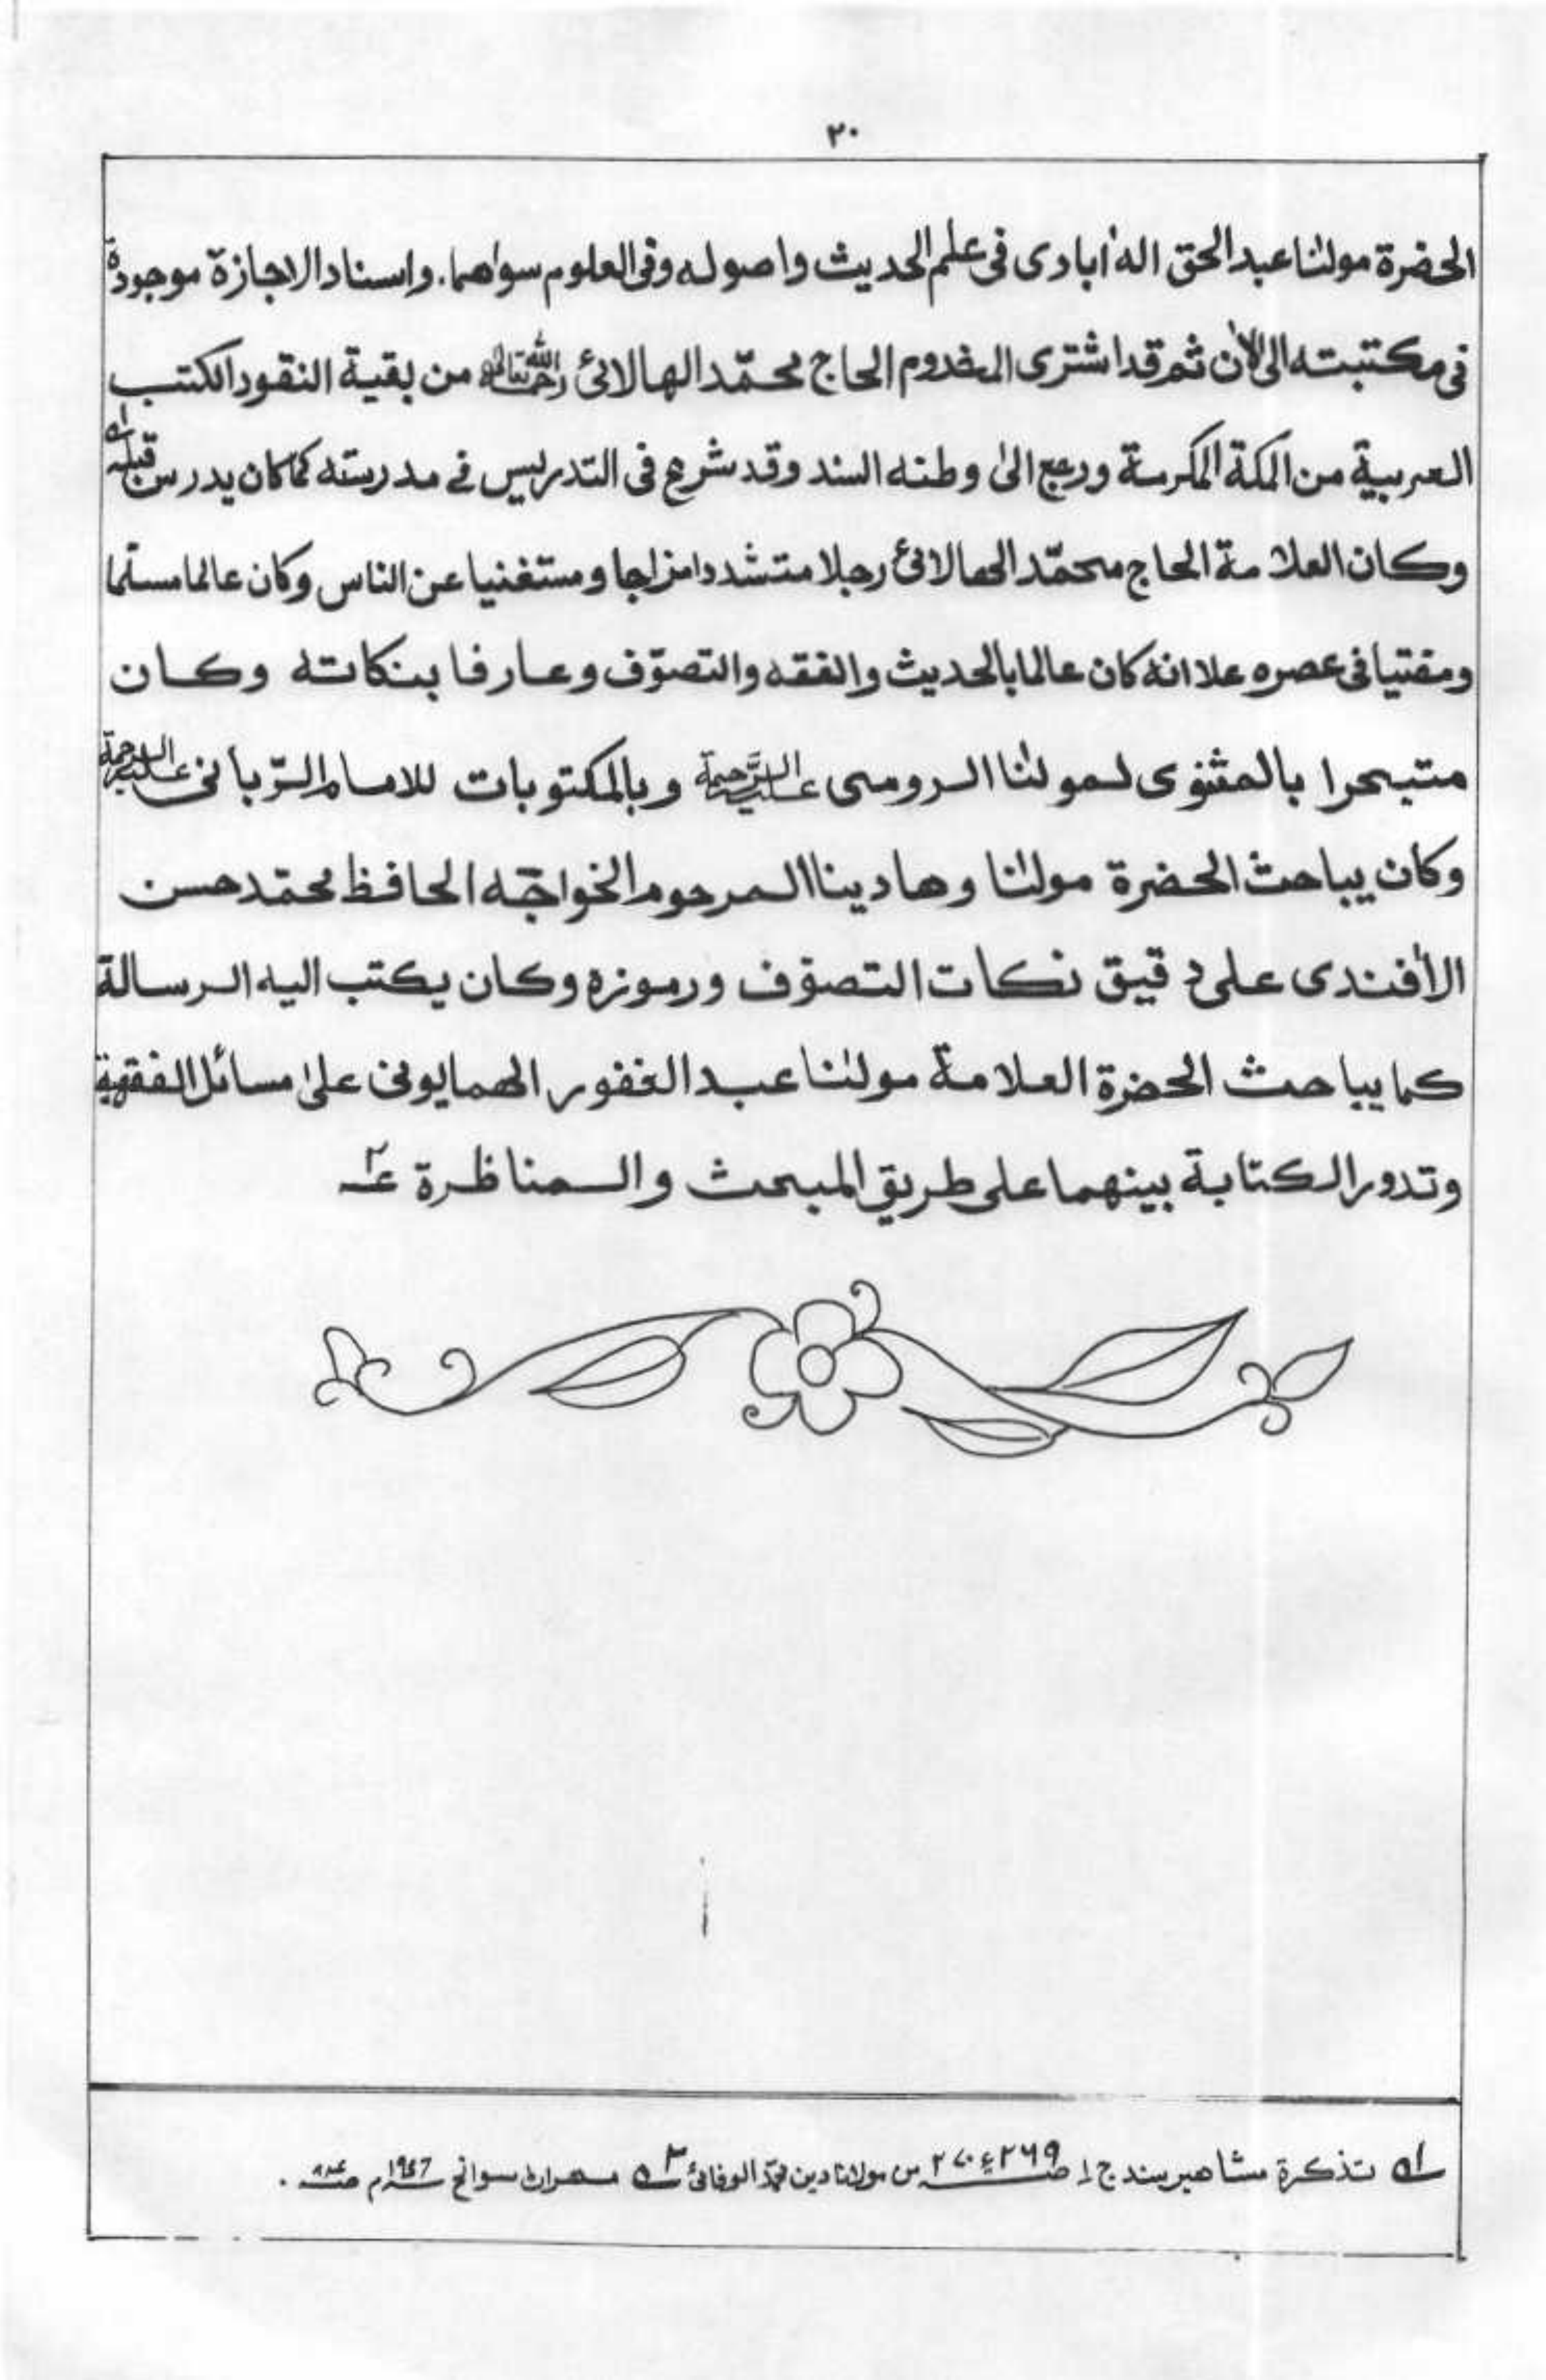 ٢٠
الحضرة مولٰنا عبد الحق الهٰ اٰبادی فی علم الحدیث واصوله وفی العلوم سواهما. واسناد الاجازة موجودة
فی مکتبته الی الاٰن ثم قد اشتری المخدوم الحاج محمّد الهالائیؒ رحمة الله تعالیٰ علیه من بقیة النقود الکتب
العربیة من المکة المکرمة ورجع الیٰ وطنه السند وقد شرع فی التدریس فی مدرسته کما کان یدرس قبله ؎۱
وکان العلامة الحاج محمّد الهالائی رجلا متشددا مزاجا ومستغنیا عن الناس وکان عالما مسلّما
ومفتیا فی عصره علا انه کان عالما بالحدیث والفقه والتصوّف وعارفا بنکاته وکان
متبحرا بالمثنوی لمولٰنا الرومی علیه الرَّحمة وبالمکتوبات للامام الرّبانی علیه الرحمة
وکان یباحث الحضرة مولٰنا وهادینا المرحوم الخواجّه الحافظ محمّد حسن
الاٰفندی علی دقیق نکات التصوّف ورموزه وکان یکتب الیه الرسالة
کما یباحث الحضرة العلامة مولٰنا عبد الغفور الهمایونی علیٰ مسائل الفقهیة
وتدور الکتابة بینهما علی طریق المبحث والمناظرة ؎۲
؎۱ تذکرة مشاهیر سند ج ۱ ص ۲۶۹ ۲۷۰ من مولانا دین محمّد الوفائی ؎۲ مهران سوانح ۱۹۵۷م